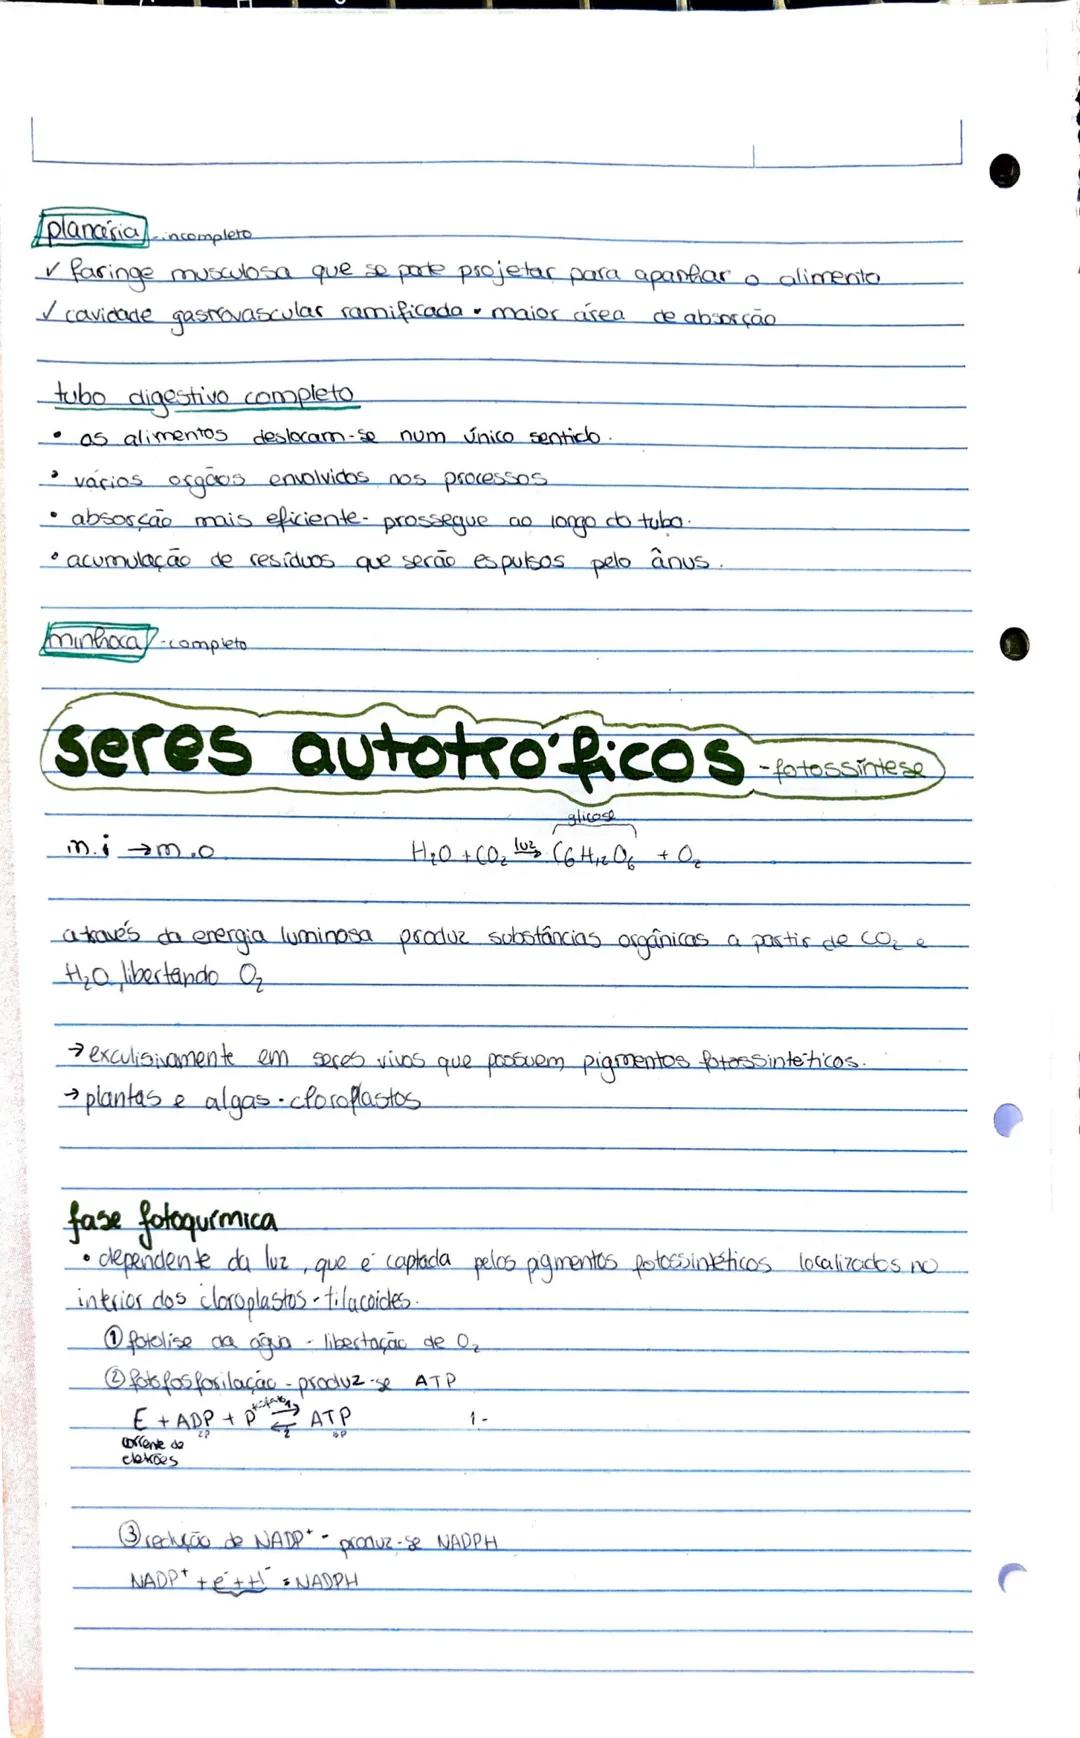 planária - incompleto
✓ faringe musculosa que se pode projetar para apanhar o alimento
✓ cavidade gastrovascular ramificada • maior área de absorção
tubo digestivo completo
• os alimentos deslocam-se num único sentido.
• vários orgãos envolvidos nos processos
• absorção mais eficiente - prossegue ao longo do tubo.
• acumulação de resíduos que serão espulsos pelo ânus.
minhoca - completo
seres autotróficos - fotossíntese
glicose
m.i → m.o H₂O + CO₂ luz→ C6H₁₂O₆ + O₂
através da energia luminosa produz substâncias orgânicas a partir de CO₂ e
H₂O, libertando O₂
→ exculisivamente em seres vivos que possuem pigmentos fotossintéticos.
→ plantas e algas • cloroplastos
fase fotoquímica
• dependente da luz, que é captada pelos pigmentos fotossintéticos localizados no
interior dos cloroplastos - tilacoides.
① fotólise da água - libertação de O₂
② fotofosforilação - produz-se ATP
E + ADP + P ⇌ ATP 1-
2P 3P
corrente de
eletrões
③ redução de NADP⁺ - produz-se NADPH
NADP⁺ + e⁻ + H⁻ = NADPH